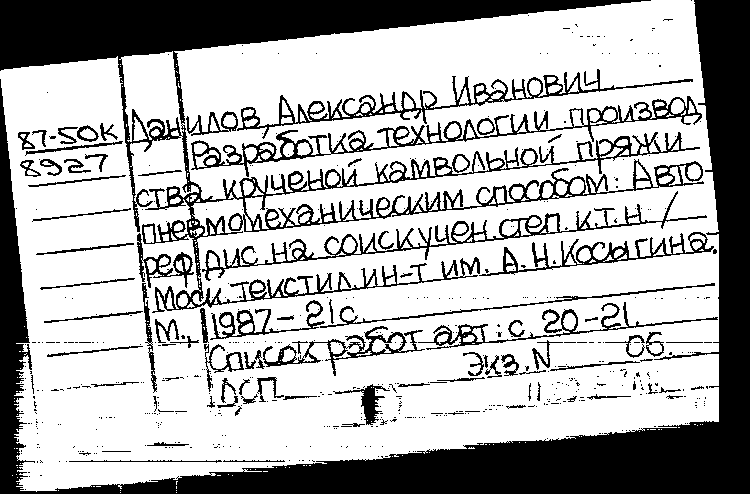 87-50К
8927
Данилов, Александр Иванович.
Разработка технологии производ-
ства крученой камвольной пряжи
пневмомеханическим способом: Авто-
реф. дис. на соиск. учен. степ. к.т.н. /
Моск. текстил. ин-т им. А.Н.Косыгина.
М., 1987.- 21с.
Список работ авт.: с. 20-21.
ДСП Экз.N 06.